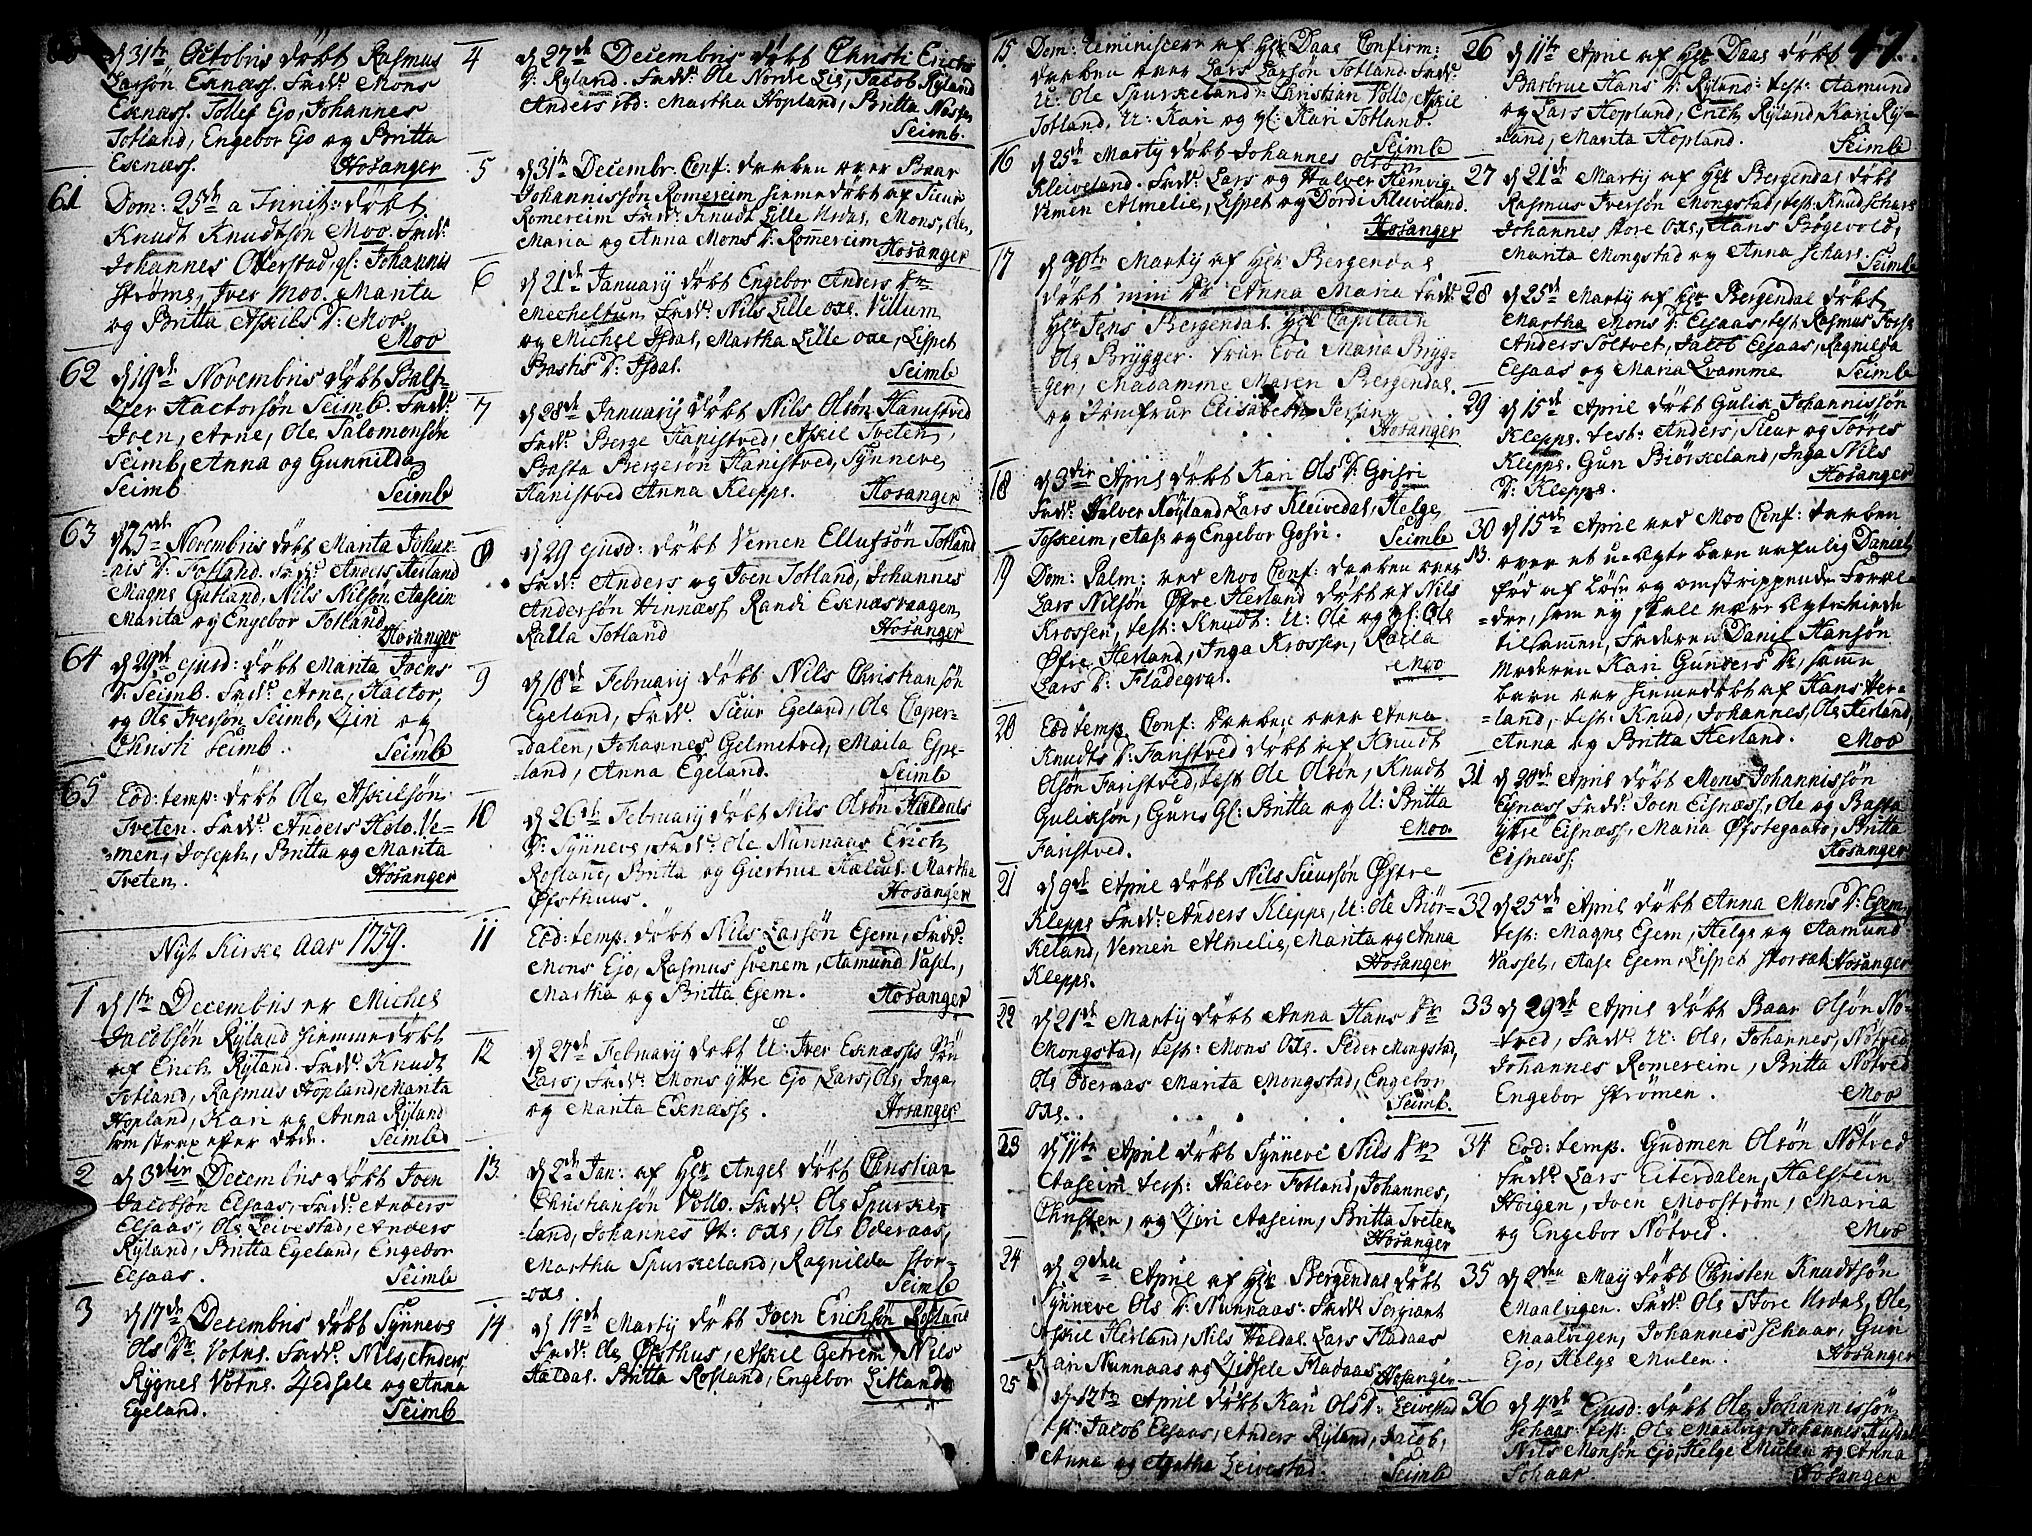 d 31te Octobris döbt Rasmus
Larsön Eknæss. Fadd. Mons
Eknæss. Tollef Ejo, Johannes
Totland, Engebor Ejo og Britta
Eknæss. Hosanger
61 Dom: 25de a Trinit: döbt
Knudt Knudtsön Moo. Fadd.
Johannes Okerstad, gl: Johannis
Ströme, Iver Moo. Marita
og Britta Askils D: Moo.
Moo
62 d 19de Novembris döbt Balt-
zer Hactorsön Seimb. Fadd:
Joen, Arne, Ole Salomonsön
Seimb, Anna og Gunnilda
Seimb Seimb
63 d 25de Novembris döbt Marita Johan-
nis D: Totland. Fadd. Anders Herland
Magne Gatland, Nils Nilsön Aaseim
Marita og Engebor Totland
Hosanger
64 d 29de ejusd: döbt Marita Joens
D: Seimb. Fadd. Arne, Hactor,
og Ole Iversön Seimb, Zjri og
Christi Seimb. Seimb
65 Eod: temp: döbt Ole Askilsön
Tveten. Fadd. Anders Holo. Ve-
men, Joseph, Britta og Marita
Tveten. Hosanger
Nyt Kirke Aar 1759.
1 d 1te Decembris er Michel
Jacobsön Ryland hiemmedöbt
af Erich Ryland. Fadd. Knudt
Totland, Rasmus Hopland, Marita
Hopland, Kari og Anna Ryland
som strax efter döde. Seimb
2 d 3die Decembris döbt Joen
Jacobsön Elsaas, Fadd. Anders
Elsaas, Ole Leivestad, Anders
Ryland, Britta Egeland, Engebor
Elsaas. Seimb
3 d 17de Decembris döbt Synneve
Ols Dr Votne. Fadd. Nils, Anders,
Rygnel Votne. Zjedsele og Anna
Egeland. Seimb
4 d 27de Decembris döbt Christi Erichs
D: Ryland. Fadd. Ole Nordre Lie, Jacob Ryland
Anders ibd: Martha Hopland, Britta
Seimb.
5 d 31te Decembr. Conf: daaben over Baar
Johannissön Romereim hiemmedöbt af Siur
Romereim Fadd. Knudt Lille Urdal, Mons, Ole,
Maria og Anna Mons D: Romereim Hosanger
6 d 21de January döbt Engebor Anders Dr
Mecheltun, Fadd. Nils Lille oxe. Villum
og Michel Isdal, Martha Lille oxe, Lispet
Basti D: Isdal. Seimb
7 d 28de January döbt Nils Olsön Hanistved
Fadd. Berge Hanistved, Askil Tveten,
Basta Bergesön Hanistved, Synneve
Hanistved Anna Klepps. Hosanger
8 d 29 ejusd: döbt Vemen Ellufsön Totland
Fadd. Anders og Joen Totland, Johannes
Andersön Hinnæss Randi Eknæsvaagen
Kalla Totland Hosanger
9 d 18de February döbt Nils Christiansön
Egeland, Fadd. Siur Egeland, Ole Caper-
dalen, Johannes Gelmetved, Maila Espe-
land, Anna Egeland. Seimb
10 d 26de February döbt Nils Olsön Haldals
D: Synneve, Fadd. Ole Nunnaas Erich
Rosland, Britta og Giertrue Haldal. Martha
Öfsthuus. Hosanger
11 Eod: temp: döbt Nils Larsön Esem, Fadd:
Mons Ejo, Rasmus Svenem, Aamund Vasel,
Martha og Britta Esem. Hosanger
12 d 27de February döbt U: Iver Eknæssis
Lars, Fadd. Mons yttre Ejo, Lars, Ole, Inga
og Marita Eknæss. Hosanger
13. d 2de Jan: af Hr Angel döbt Christian
Christiansön Vollo. Fadd. Ole Spurke-
land, Johannes U: oxe, Ole Oderaas,
Martha Spurkeland, Ragnilda Stor-
oxe. Seimb
14 d 14de Marty döbt Joen Erichsön Rosland
Fadd. Ole Öfsthus, Askil Getrem, Nils
Haldal. Britta Rosland, Engebor Litland
15 Dom: Reminiscere af Hr Daae Confirm:
daaben over Lars Larsön Totland. Fadd.
U: Ole Spurkeland, Christian Vollo, Askil
Totland, U: Kari og gl: Kari Totland.
Seimb
16 d 25de Marty döbt Johannes Olsön
Kleiveland. Fadd. Lars og Halver Hemvig.
Vemen Almelie, Lispet og Dordi Kleiveland.
Hosanger
17 d 30te Marty af Hr Bergendal
döbt min Dr Anna Maria Fadd.
Hr Jens Bergendal. Hr Capitain
Ole Brygger. Frue Eva Maria Bryg-
ger, Madamme Maren Bergendal.
og Jomfrue Elisabeth Jersin
Hosanger
18 d 3die April döbt Kari Ols D: Gosri
Fadd. Halver Röyland, Lars Kleivedal, Helge
Toskeim, Aase og Engebor Gosri. Seimb
19 Dom: Palm: ved Moo Conf: daaben over
Lars Nilsön Öfre Herland döbt af Nils
Krossen, test: Knudt: U: Ole og gl: Ole
Öfre Herland, Inga Krossen, Kaila
Lars D: Fladegval. Moo
20 Eod temp: Conf: Daaben over Anna
Knudts D: Faristved döbt af Knudt
Olsön Faristved, test Ole Olsön, Knudt
Guliksön, Guri Gl: Britta og U: Britta
Faristved. Moo.
21 d 9de April döbt Nils Siursön Östre
Klepps Fadd. Anders Klepps, U: Ole Biör-
keland, Vemen Almelie, Marita og Anna
Klepps. Hosanger
22 d 21de Marty döbt Anna Hans Dr
Mongstad, test: Mons Oxe. Peder Mongstad,
Ole Oderaas Marita Mongstad, Engebor
oxe. Seimb.
23 d 11te April döbt Synneve Nils Dr
Aaseim test: Halver Totland, Johannes,
Christen, og Zjöri Aaseim, Britta Tveten
Hosanger
24 d 2den April af Hr Bergendal döbt
Synneve Ols D: Nunnaas. Fadd. Sergiant
Askil Herland, Nils Haldal. Lars Fladaas
Kari Nunnaas og Zjidsele Fladaas Hosanger
25 d 12te April döbt Kari Ols D: Leivestad
test: Jacob Elsaas, Anders Ryland, Jacob,
Anna og Agatha Leivestad. Seimb
47.
26 d 11te April af Hr Daae döbt
Barbrue Hans D: Ryland: test: Aamund
og Lars Hopland, Erich Ryland, Kari Ry-
land, Marita Hopland. Seimb
27 d 21de Marty af Hr Bergendal döbt
Rasmus Iversön Mongstad, test: Knud Schare
Johannes store Oxe, Hans Bögevold,
Marita Mongstad og Anna Schare. Seimb
28 d 25de Marty af Hr Bergendal döbt
Martha Mons D: Elsaas, test: Rasmus
Anders Soltvet, Jacob Elsaas, Ragnilda
Elsaas og Maria Qvamme Seimb
29 d 15de April döbt Gulik Johannissön
Klepps. test: Anders, Siur og Torres
Klepps. Gun Biörkeland, Inga Nils
D: Klepps. Hosanger
30 d 15de April ved Moo Conf: daaben
NB. over et u-ægte barn nafnlig Daniel,
föd af löse og omstrippende Foræl-
dre, som ey skall være ægteviede
tilsamen, Faderen Daniel Hansön
Moderen Kari Gunders Dr, samme
barn var hiemedöbt af Hans Her-
land, test: Knud, Johannes, Ole Herland,
Anna og Britta Herland. Moo
31 d 20de April döbt Mons Johannissön
Eisnæss Fadd. Joen Eisnæss, Ole og Basta
yttre Eisnæss, Maria Öfstegaard, Britta
Eisnæss. Hosanger
32 d 25de April döbt Anna Mons D: Esem,
test: Magne Esem, Helge og Aamund
Vassel, Aase Esem, Lispet Storsæt Hosanger
33 d 29de April döbt Baar Olsön Nö-
tved, Fadd. U: Ole, Johannes, Nötved
Johannes Romereim, Britta Nötved
Engebor Strömen. Moo
34 Eod: temp. Gudmen Olsön Nötved
Fadd. Lars Eiterdalen, Halstein
Hoigen, Joen Mooström, Maria
og Engebor Nötved. Moo
35 d 2den Maij döbt Christen Knudtsön
Maalvigen. Fadd. Ole Store Urdal, Ole
Maalvigen, Johannes Schaar, Guri
Ejo, Helge Mulen. Hosanger
36 d 4de Ejusd: döbt Ole Johannissön
Schaar test: Ole Maalvig, Johannes
Nils Monsön Ejo, Helge Mulen og Anna
Schaar Hosanger